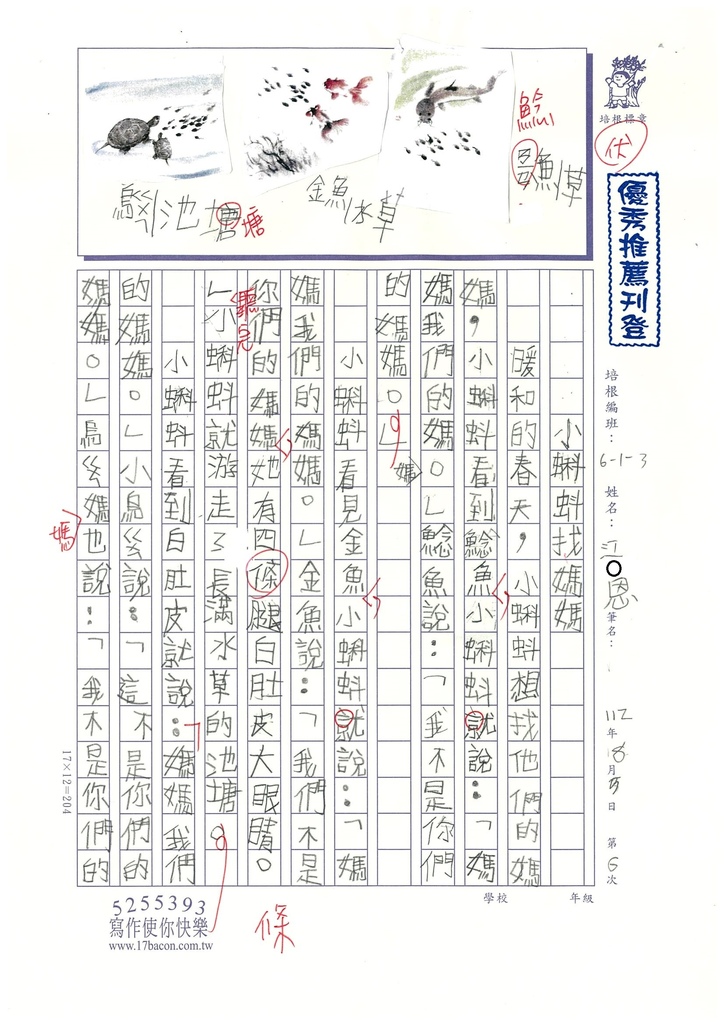 培根標章
伏
優秀推薦刊登
鯰
魚草
金魚水草
池塘
塘
培根編班:6-1-3
姓名:江○恩
筆名:
112年8月5日
第6次
小蝌蚪找媽媽
暖和的春天,小蝌蚪想找他們的媽
媽,小蝌蚪看到鯰魚小蝌蚪就說:「媽
媽我們的媽。」鯰魚說:「我不是你們
的媽媽。」
媽
小蝌蚪看見金魚小蝌蚪就說:「媽
媽我們的媽媽。」金魚說:「我們不是
你們的媽媽她有四條腿白肚皮大眼睛。
條
聽完
」小蝌蚪就游走了長滿水草的池塘。
小蝌蚪看到白肚皮就說:「媽媽我們
的媽媽。」小烏幺說:「這不是你們的
媽媽。」烏幺媽也說:「我不是你們的
媽
17×12=204
學校 年級
5255393
寫作使你快樂
www.17bacon.com.tw